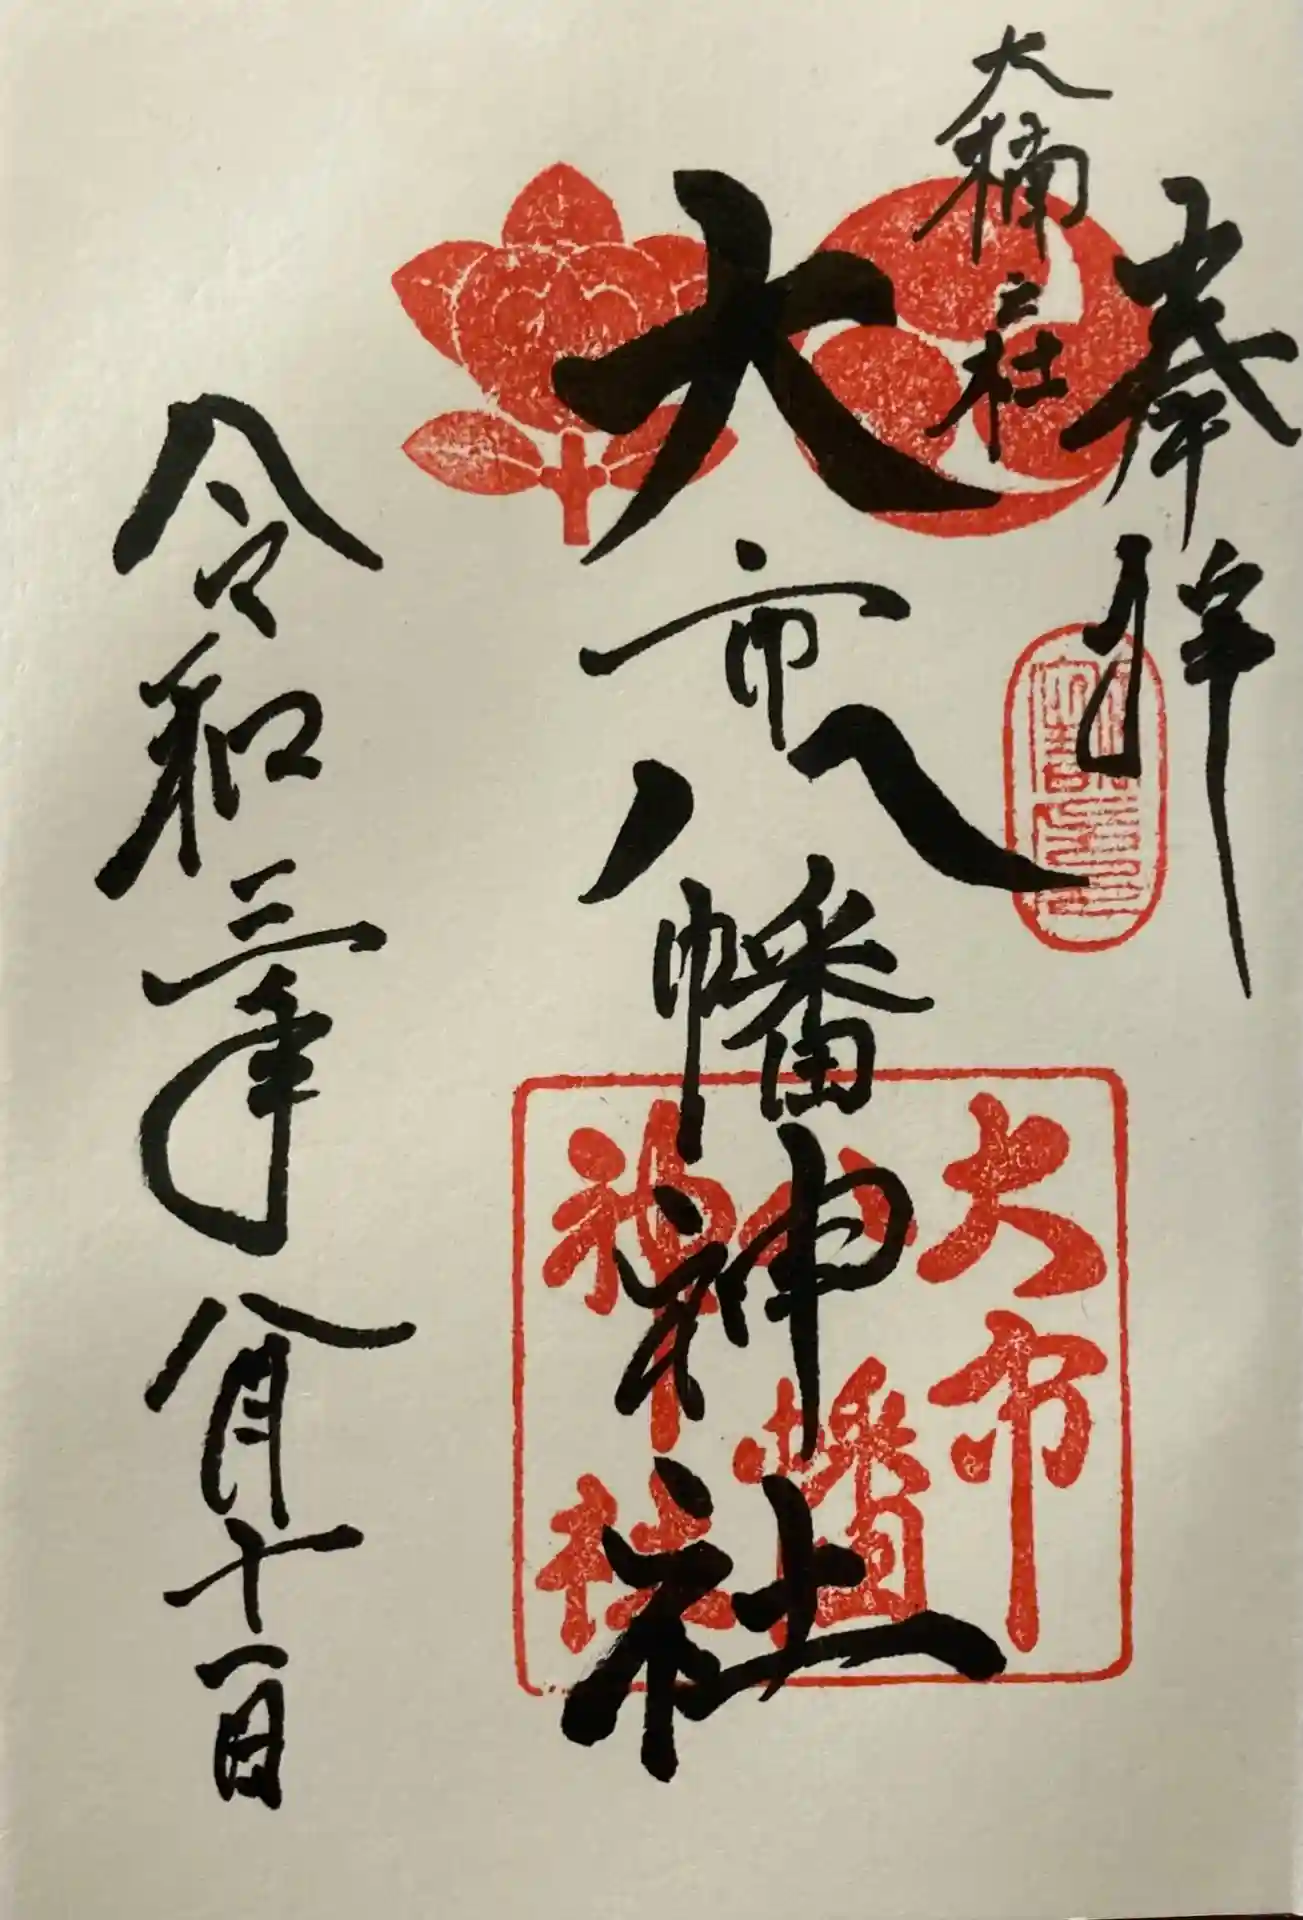 奉拝
大楠之社
大市八幡神社
令和三年八月十一日
大市
八幡
神社